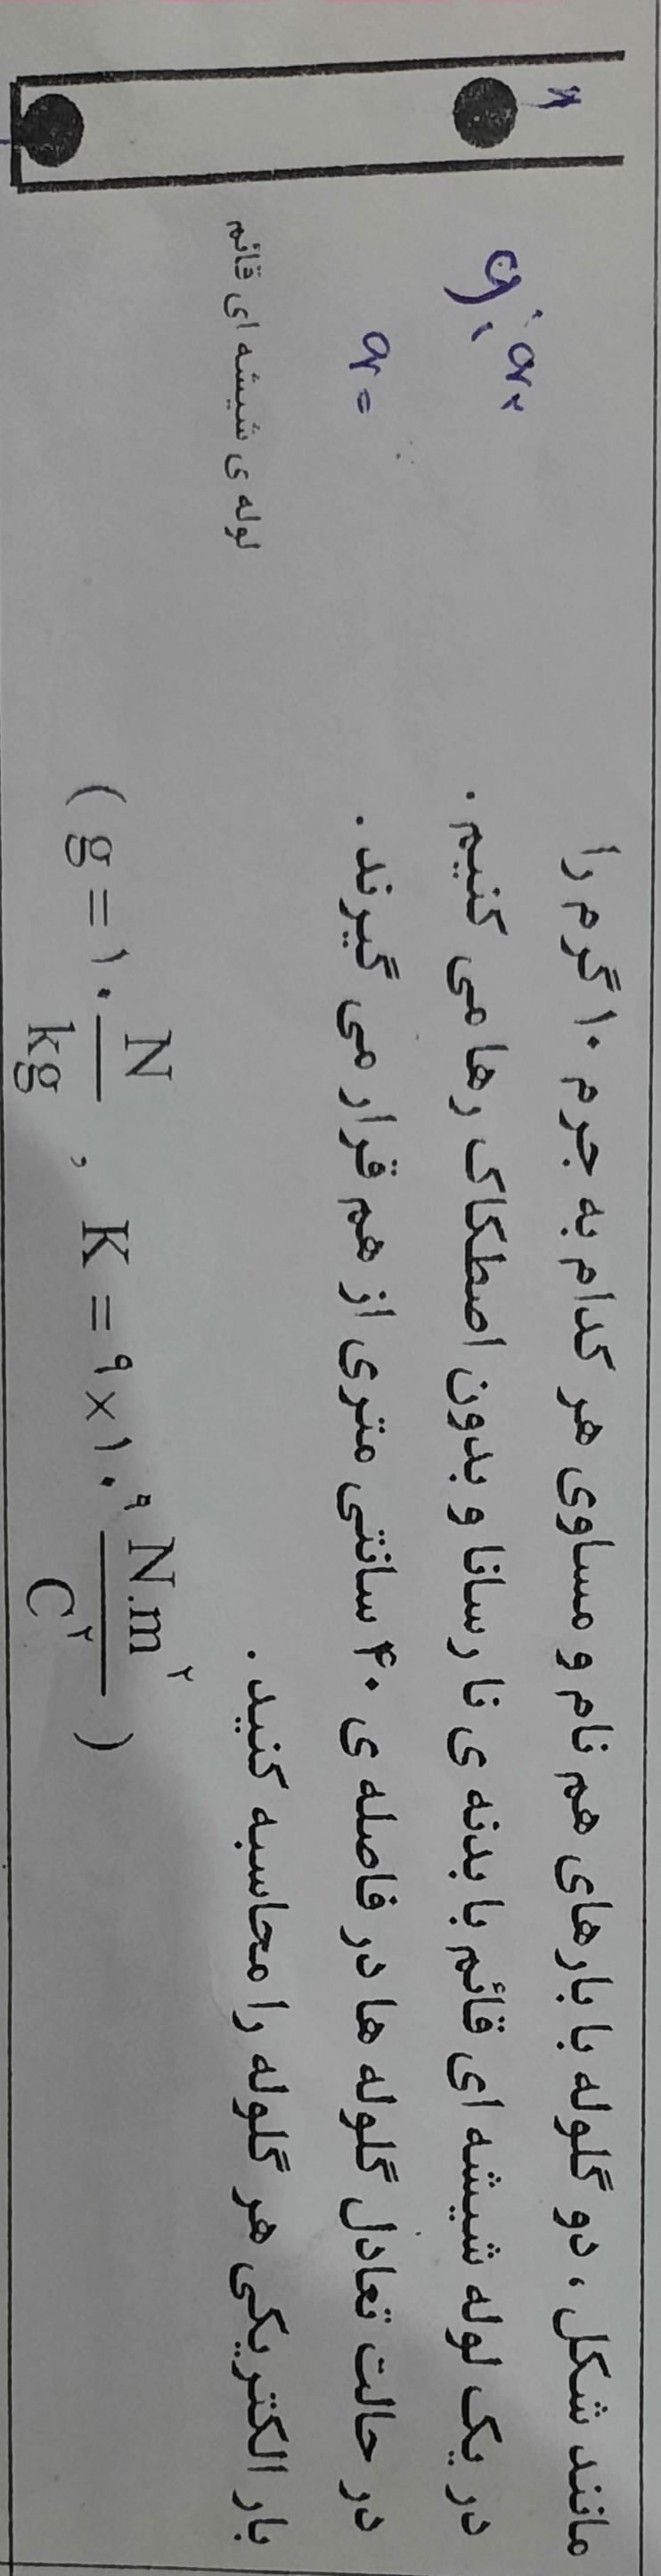 مانند شکل، دو گلوله با بارهای هم نام و مساوی هر کدام به جرم ۱۰ گرم را
در یک لوله شیشه ای قائم با بدنه ی نارسانا و بدون اصطکاک رها می کنیم.
در حالت تعادل گلوله ها در فاصله ی ۴۰ سانتی متری از هم قرار می گیرند.
بار الکتریکی هر گلوله را محاسبه کنید.
(g = ۱۰ N/kg , K = ۹×۱۰^۹ N.m^۲/C^۲)
لوله ی شیشه ای قائم